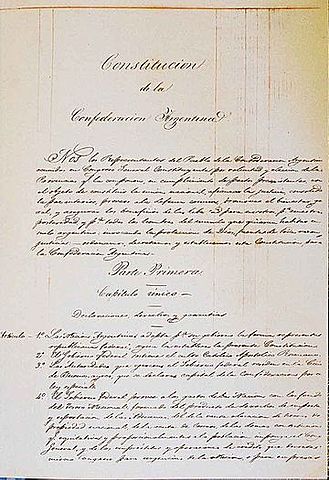 Constitucion
de la
Confederacion Argentina
Nos los Representantes del Pueblo de la Confederacion Argentina
reunidos en Congreso General Constituyente por voluntad y eleccion de las
Provincias que la componen, en cumplimiento de pactos preexistentes, con
el objeto de constituir la union nacional, afianzar la justicia, consolidar
la paz interior, proveer a la defensa comun, promover el bienestar gene-
ral, y asegurar los beneficios de la libertad para nosotros, pª nuestra
posteridad y pª todos los hombres del mundo que quieran habitar en el
suelo argentino, invocando la proteccion de Dios, fuente de toda razon y
justicia: ordenamos, decretamos y establecemos esta Constitucion, para
la Confederacion Argentina.
Parte Primera
Capitulo único
Declaraciones, derechos y garantias
Articulo 1º La Nacion Argentina adopta pª su gobierno la forma representativa
republicana federal, segun la establece la presente Constitucion
2º El Gobierno Federal sostiene el culto Catolico Apostolico Romano.
3º Las Autoridades que ejercen el Gobierno federal residen en la Ciu-
dad de Buenos Ayres, que se declara capital de la Confederacion por una
ley especial.
4º El Gobierno Federal provee a los gastos de la Nacion con los fondos
del Tesoro Nacional, formado del producto de derechos de importacion
y esportacion de las Aduanas, del de la venta o locacion de tierras de
propiedad nacional, de la renta de Correos, de las demas contribuciones